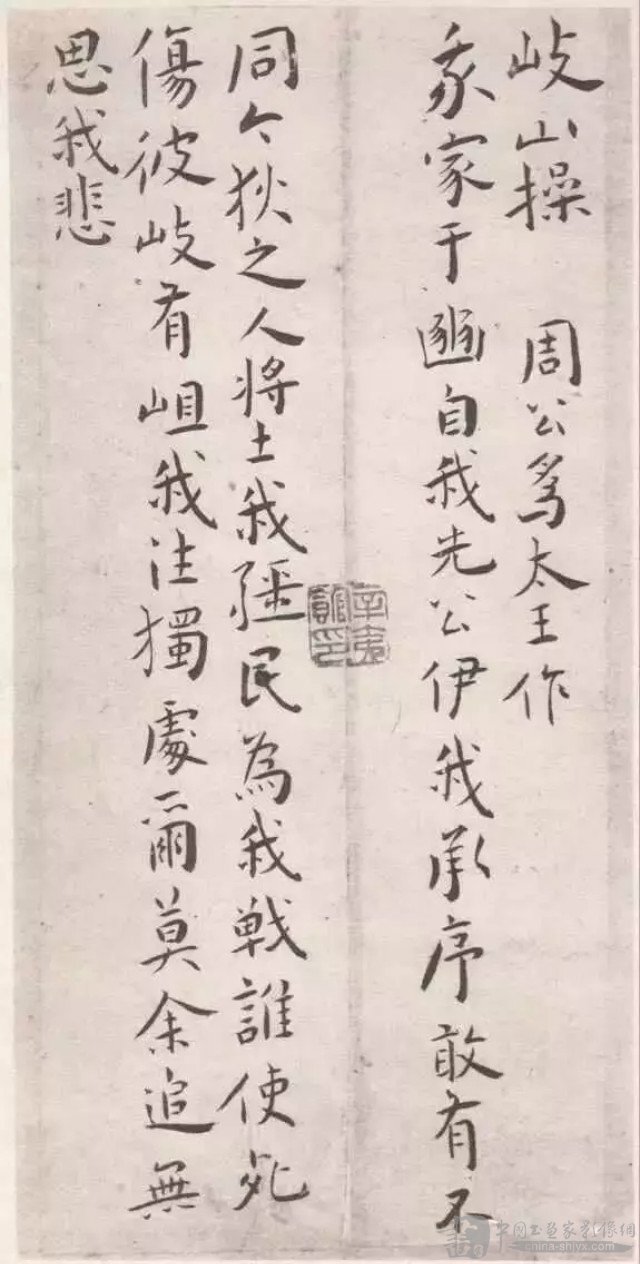 岐山操　周公為太王作
我家于豳自我先公伊我承序敢有不
同今狄之人將土我疆民為我戰誰使死
傷彼岐有岨我往獨處爾莫余追無
思我悲
辛夷館印
中國书画家影像網
china-shyx.com